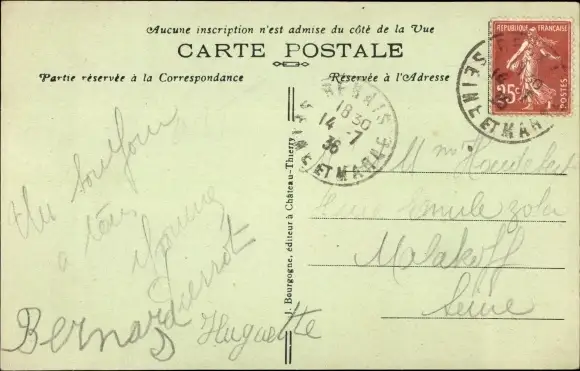 Aucune inscription n'est admise du côté de la Vue
CARTE POSTALE
Partie réservée à la Correspondance
Réservée à l'Adresse
RÉPUBLIQUE FRANÇAISE
25c
POSTES
SEINE ET MARNE
18 30
14 -7
36
SEINE ET MARNE
J. Bourgogne, éditeur à Château-Thierry
Un bonjour
a tous
Bernard
Pierrot
Huguette
Mme
Emile Zola
Malakoff
Seine